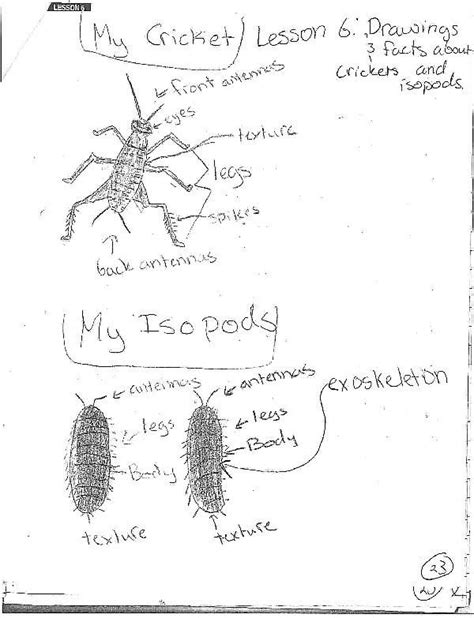 LESSON 6
My Cricket
Lesson 6: Drawings
3 facts about
crickets and
isopods.
front antennas
eyes
texture
legs
spikes
back antennas
My Isopods
antennas
antennas
exoskeleton
legs
legs
Body
Body
texture
texture
23